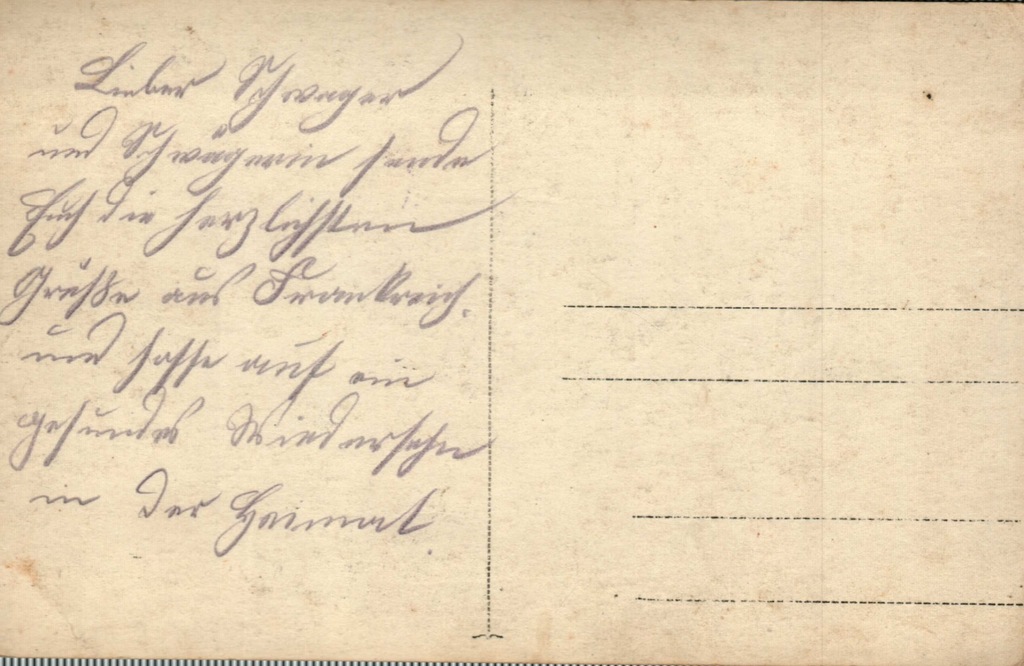 Lieber Schwager
und Schwägerin sende
Euch die herzlichsten
Grüße aus Frankreich.
und hoffe auf ein
gesundes Wiedersehn
in der Heimat.